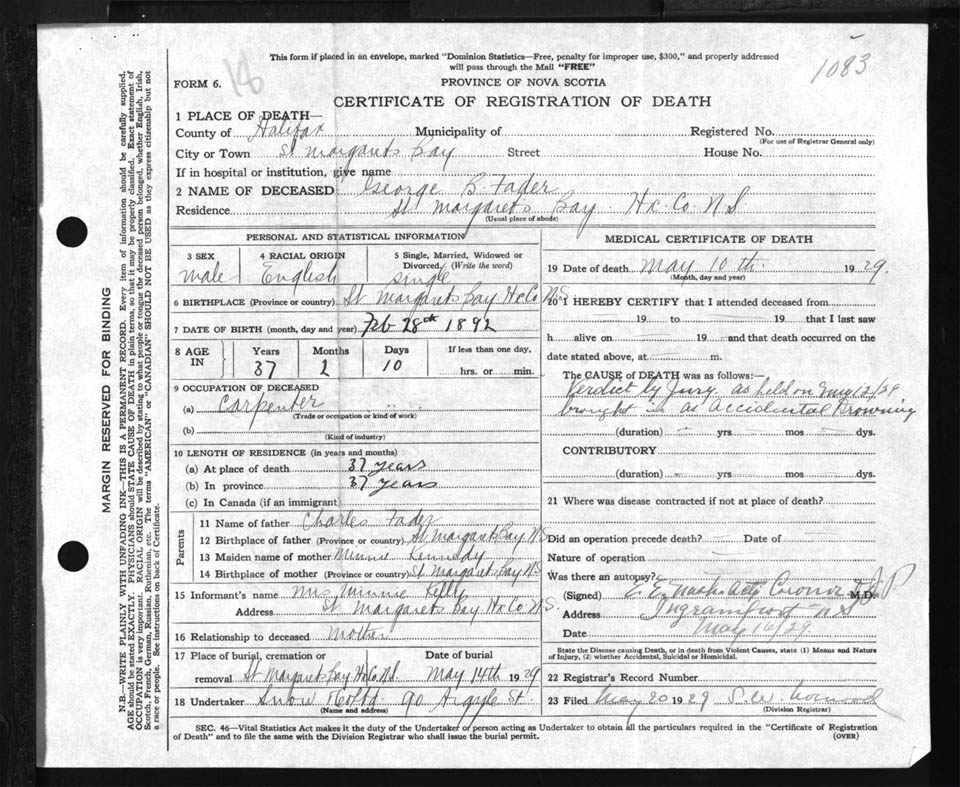 This form if placed in an envelope, marked "Dominion Statistics—Free, penalty for improper use, $300," and properly addressed
will pass through the Mail "FREE"
1083
FORM 6.
18
PROVINCE OF NOVA SCOTIA
CERTIFICATE OF REGISTRATION OF DEATH
1 PLACE OF DEATH—
County of Halifax Municipality of Registered No.
(For use of Registrar General only)
City or Town St Margarets Bay Street House No.
If in hospital or institution, give name
2 NAME OF DECEASED George B. Fader
Residence St Margarets Bay Hx. Co. N.S.
(Usual place of abode)
PERSONAL AND STATISTICAL INFORMATION
3 SEX 4 RACIAL ORIGIN 5 Single, Married, Widowed or
Divorced, (Write the word)
male English single
6 BIRTHPLACE (Province or country) St Margarets Bay Hx Co N S
7 DATE OF BIRTH (month, day and year) Feb 28th 1892
8 AGE IN Years Months Days If less than one day,
37 2 10 hrs. or min.
9 OCCUPATION OF DECEASED
(a) Carpenter
(Trade or occupation or kind of work)
(b)
(Kind of industry)
10 LENGTH OF RESIDENCE (in years and months)
(a) At place of death 37 years
(b) In province 37 years
(c) In Canada (if an immigrant)
Parents
11 Name of father Charles Fader
12 Birthplace of father (Province or country) St Margarets Bay N S
13 Maiden name of mother Minnie Kennedy
14 Birthplace of mother (Province or country) St Margarets Bay N S
15 Informant's name Mrs Minnie
Address St Margarets Bay Hx Co N S.
16 Relationship to deceased Mother
17 Place of burial, cremation or Date of burial
removal St Margarets Bay Hx Co N.S. May 14th 1929
18 Undertaker Snow 90 Argyle St
(Name and address)
MEDICAL CERTIFICATE OF DEATH
19 Date of death May 10th 1929.
(Month, day and year)
20 I HEREBY CERTIFY that I attended deceased from
19 to 19 that I last saw
h alive on 19 and that death occurred on the
date stated above, at m.
The CAUSE OF DEATH was as follows:—
Verdict by Jury as held on May 12/29
brought in as Accidental Drowning
(duration) yrs mos dys.
CONTRIBUTORY
(duration) yrs mos dys.
21 Where was disease contracted if not at place of death?
Did an operation precede death? Date of
Nature of operation
Was there an autopsy?
(Signed) E. E. Coroner M.D. J P
Address Ingramport N S
Date May 16/29.
State the Disease causing Death, or in death from Violent Causes, state (1) Means and Nature
of Injury, (2) whether Accidental, Suicidal or Homicidal.
22 Registrar's Record Number
23 Filed May 20 1929 S. W.
(Division Registrar)
SEC. 46—Vital Statistics Act makes it the duty of the Undertaker or person acting as Undertaker to obtain all the particulars required in the "Certificate of Registration
of Death" and to file the same with the Division Registrar who shall issue the burial permit. (OVER)
MARGIN RESERVED FOR BINDING
N.B.—WRITE PLAINLY WITH UNFADING INK—THIS IS A PERMANENT RECORD. Every item of information should be carefully supplied.
AGE should be stated EXACTLY. PHYSICIANS should STATE CAUSE OF DEATH in plain terms, so that it may be properly classified. Exact statement of
OCCUPATION is very important. RACIAL ORIGIN will be described by stating to what people or tongue the deceased person belonged, whether English, Irish,
Scotch, French, German, Russian, Ruthenian, etc. The terms "AMERICAN" or "CANADIAN" SHOULD NOT BE USED as they express citizenship but not
a race or people. See instructions on back of Certificate.